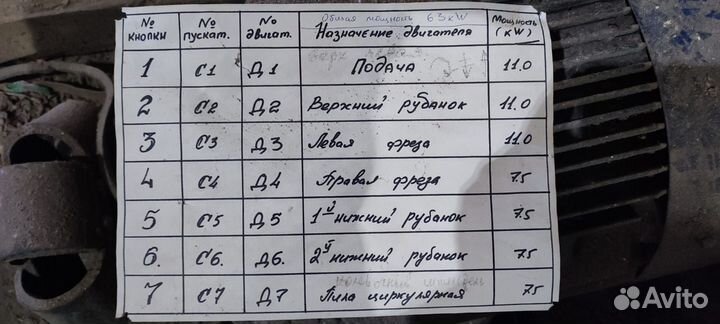 Общая мощность 63 kW
№ кнопки № пускат. № двигат. Назначение двигателя Мощность (кW)
1 С1 Д1 Подача 11.0
2 С2 Д2 Верхний рубанок 11.0
3 С3 Д3 Левая фреза 11.0
4 С4 Д4 Правая фреза 7.5
5 С5 Д5 1й нижний рубанок 7.5
6. С6. Д6. 2й нижний рубанок 7.5
7 С7 Д7 Пила циркулярная 7.5
Avito